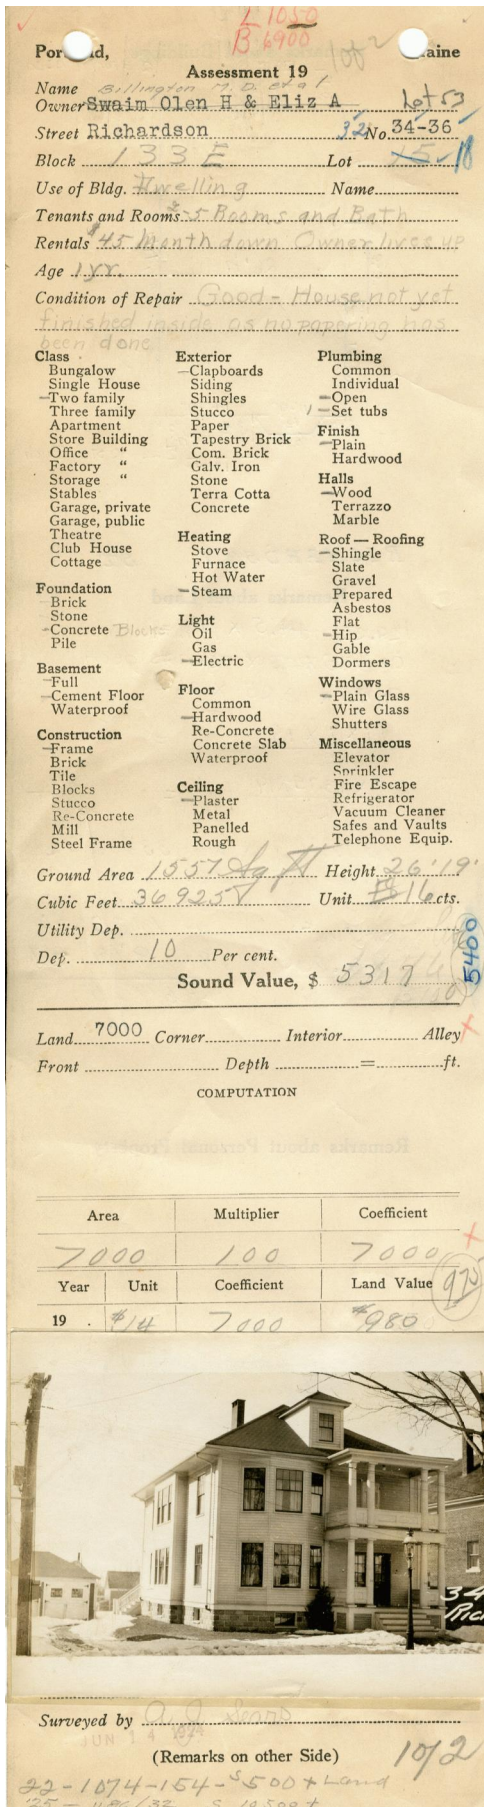 L 1050
B 6900
1 of 2
Portland, Maine
Assessment 19
Name Billington M. D. et al
Owner Swaim Olen H & Eliz A Lot 53
Street Richardson 32 No. 34-36
Block 133 E Lot 15 18
Use of Bldg. Dwelling Name
Tenants and Rooms 2-5 Rooms and Bath
Rentals $45 Month down Owner lives up
Age 1 yr.
Condition of Repair Good - House not yet
finished inside as no papering has
been done
Class
Bungalow
Single House
Two family
Three family
Apartment
Store Building
Office "
Factory "
Storage "
Stables
Garage, private
Garage, public
Theatre
Club House
Cottage
Foundation
Brick
Stone
Concrete Blocks
Pile
Basement
Full
Cement Floor
Waterproof
Construction
Frame
Brick
Tile
Blocks
Stucco
Re-Concrete
Mill
Steel Frame
Exterior
Clapboards
Siding
Shingles
Stucco
Paper
Tapestry Brick
Com. Brick
Galv. Iron
Stone
Terra Cotta
Concrete
Heating
Stove
Furnace
Hot Water
Steam
Light
Oil
Gas
Electric
Floor
Common
Hardwood
Re-Concrete
Concrete Slab
Waterproof
Ceiling
Plaster
Metal
Panelled
Rough
Plumbing
Common
Individual
Open
1 Set tubs
Finish
Plain
Hardwood
Halls
Wood
Terrazzo
Marble
Roof — Roofing
Shingle
Slate
Gravel
Prepared
Asbestos
Flat
Hip
Gable
Dormers
Windows
Plain Glass
Wire Glass
Shutters
Miscellaneous
Elevator
Sprinkler
Fire Escape
Refrigerator
Vacuum Cleaner
Safes and Vaults
Telephone Equip.
Ground Area 1557 Sq ft Height 26' 19'
Cubic Feet 36925 Unit 16 cts.
Utility Dep.
Dep. 10 Per cent.
5400
Sound Value, $ 5317
Land 7000 Corner Interior Alley
Front Depth = ft.
COMPUTATION
Area Multiplier Coefficient
7000 100 7000
Year Unit Coefficient Land Value 975
19 . $14 7000 $980
34
Ric
Surveyed by
JUN 14
(Remarks on other Side)
1 of 2
22-1074-154-$500 + Land